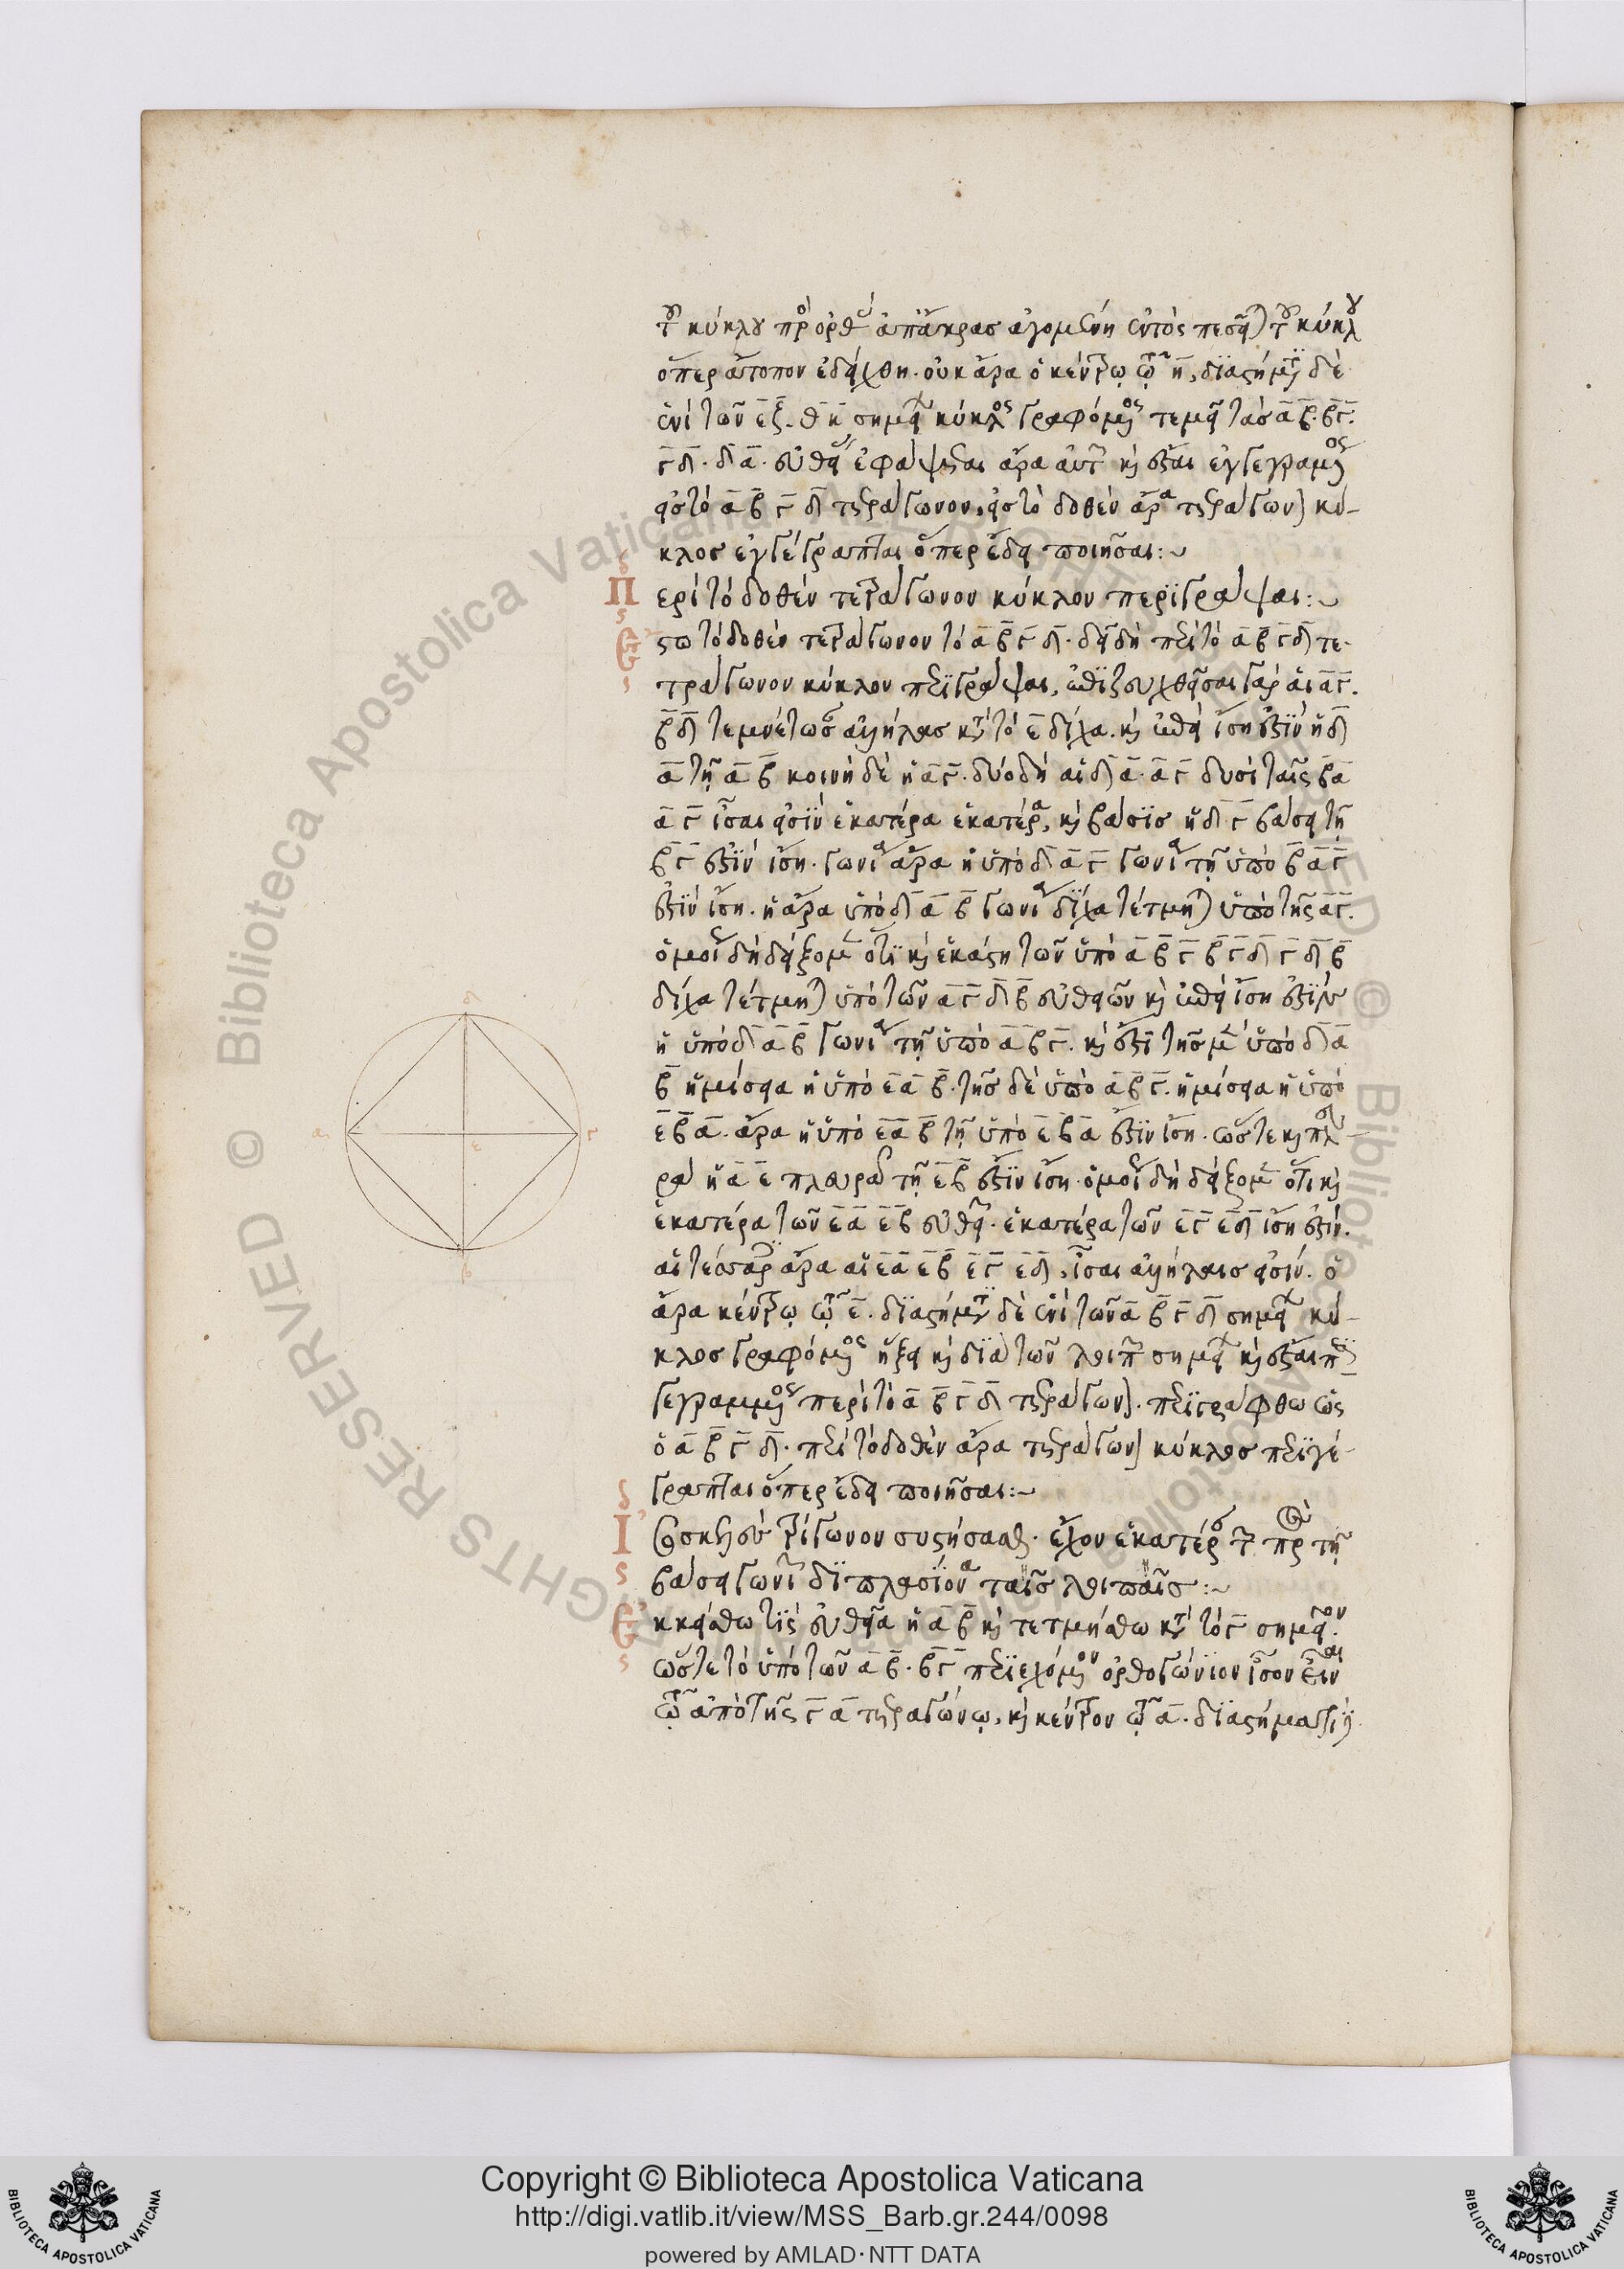 τοῦ κύκλου πρὸς ὀρθὰς ἀπ' ἄκρας ἀγομένη ἐντὸς πεσεῖται τοῦ κύκλου
ὅπερ ἄτοπον ἐδείχθη. οὐκ ἄρα ὁ κέντρῳ τῷ η, διαστήματι δὲ
ἑνὶ τῶν ε ζ θ κ σημείων κύκλος γραφόμενος τεμεῖ τὰς α β. β γ.
γ δ. δ α. εὐθείας ἐφάψεται ἄρα αὐτῶν καὶ ἔσται ἐγγεγραμμένος
εἰς τὸ α β γ δ τετράγωνον, εἰς τὸ δοθὲν ἄρα τετράγωνον κύ-
κλος ἐγγέγραπται ὅπερ ἔδει ποιῆσαι:~
Περὶ τὸ δοθὲν τετράγωνον κύκλον περιγράψαι:~
Ἔστω τὸ δοθὲν τετράγωνον τὸ α β γ δ. δεῖ δὴ περὶ τὸ α β γ δ τε-
τράγωνον κύκλον περιγράψαι, ἐπιζευχθεῖσαι γὰρ αἱ α γ.
β δ τεμνέτωσαν ἀλλήλας κατὰ τὸ ε δίχα. καὶ ἐπεὶ ἴση ἐστὶν ἡ δ
α τῇ α β κοινὴ δὲ ἡ α γ. δύο δὴ αἱ δ α. α γ δυσὶ ταῖς β α
α γ ἴσαι εἰσὶν ἑκατέρα ἑκατέρα, καὶ βάσις ἡ δ γ βάσει τῇ
β γ ἐστὶν ἴση. γωνία ἄρα ἡ ὑπὸ δ α γ γωνία τῇ ὑπὸ β α γ
ἐστὶν ἴση. ἡ ἄρα ὑπὸ δ α β γωνία δίχα τέτμηται ὑπὸ τῆς α γ.
ὁμοίως δὴ δείξομεν ὅτι καὶ ἑκάστη τῶν ὑπὸ α β γ β γ δ γ δ β
δίχα τέτμηται ὑπὸ τῶν α γ δ β εὐθειῶν καὶ ἐπεὶ ἴση ἐστὶν
ἡ ὑπὸ δ α β γωνία τῇ ὑπὸ α β γ. καὶ ἔστι τῆς μὲν ὑπὸ δ α
β ἡμίσεια ἡ ὑπὸ ε α β. τῆς δὲ ὑπὸ α β γ. ἡμίσεια ἡ ὑπὸ
ε β α. ἄρα ἡ ὑπὸ ε α β τῇ ὑπὸ ε β α ἐστὶν ἴση. ὥστε καὶ πλευ-
ρὰ ἡ α ε πλευρᾶ τῇ ε β ἐστὶν ἴση. ὁμοίως δὴ δείξομεν ὅτι καὶ
ἑκατέρα τῶν ε α ε β εὐθειῶν. ἑκατέρα τῶν ε γ ε δ ἴση ἐστίν.
αἱ τέσσαρες ἄρα αἱ ε α ε β ε γ ε δ, ἴσαι ἀλλήλαις εἰσίν. ὁ
ἄρα κέντρῳ τῷ ε. διαστήματι δὲ ἑνὶ τῶν α β γ δ σημείων κύ-
κλος γραφόμενος ἥξει καὶ διὰ τῶν λοιπῶν σημείων καὶ ἔσται περι
γεγραμμένος περὶ τὸ α β γ δ τετράγωνον. περιγεγράφθω ὡς
ὁ α β γ δ. περὶ τὸ δοθὲν ἄρα τετράγωνον κύκλος περιγέ-
γραπται ὅπερ ἔδει ποιῆσαι:~
Ἰσοσκελὲς τρίγωνον συστήσασθαι. ἔχον ἑκατέραν τῶν πρὸς τῇ
βάσει γωνιῶν διπλασίονα ταῖς λοιπαῖς:~
Ἐκκείσθω τις εὐθεῖα ἡ α β καὶ τετμήσθω κατὰ τὸ γ σημεῖον.
ὥστε τὸ ὑπὸ τῶν α β. β γ περιεχόμενον ὀρθογώνιον ἴσον εἶναι
τῷ ἀπὸ τῆς γ α τετραγώνῳ, καὶ κέντρον τῷ α. διαστήματι
δ
α
γ
ε
β
Copyright © Biblioteca Apostolica Vaticana
http://digi.vatlib.it/view/MSS_Barb.gr.244/0098
powered by AMLAD·NTT DATA
BIBLIOTECA APOSTOLICA VATICANA
BIBLIOTECA APOSTOLICA VATICANA